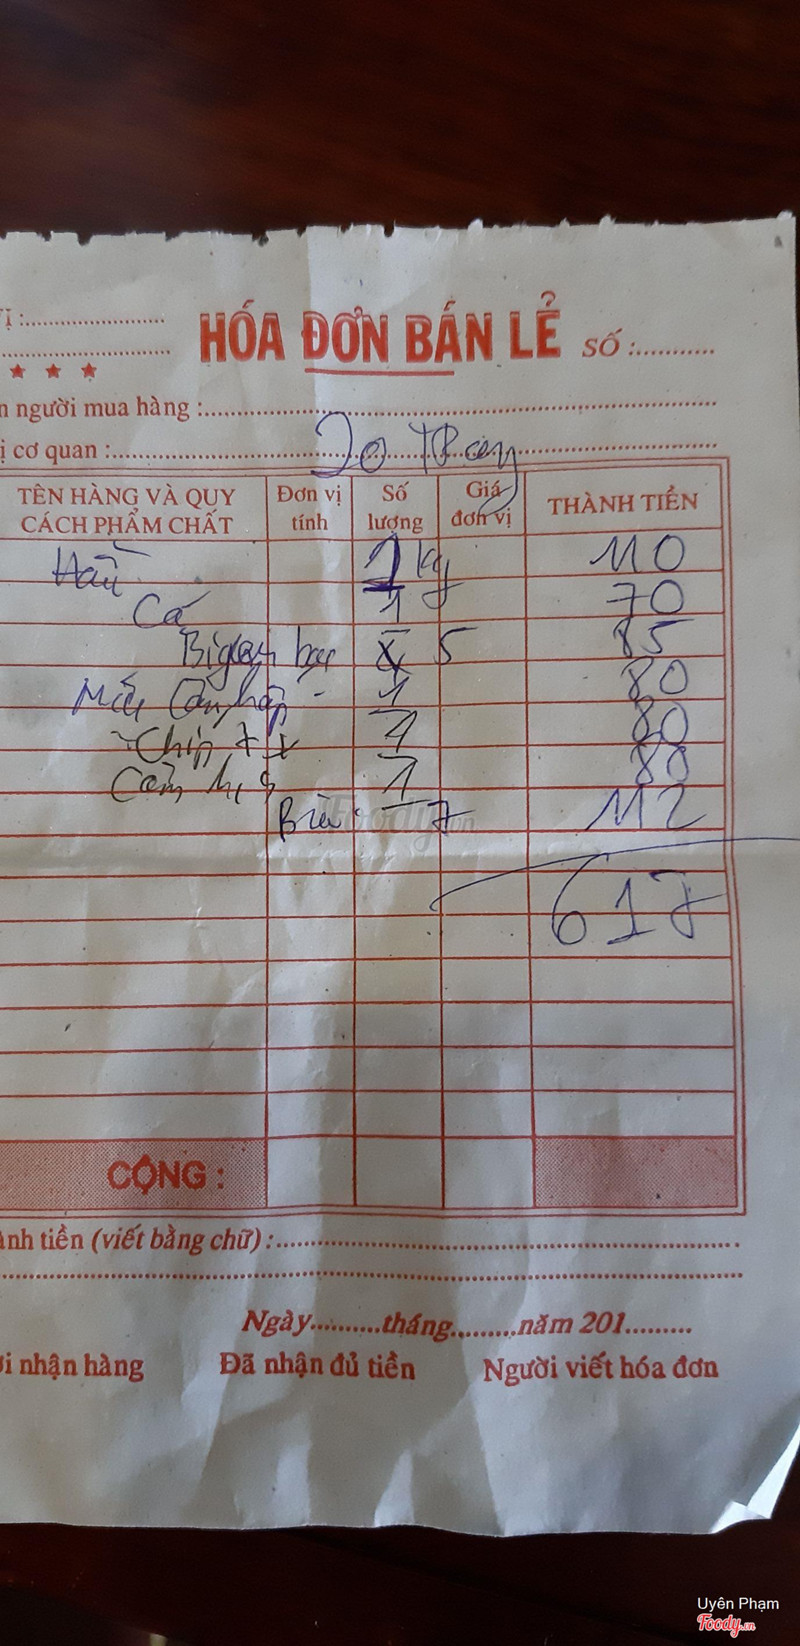 HÓA ĐƠN BÁN LẺ SỐ :
n người mua hàng :
ị cơ quan : 20
TÊN HÀNG VÀ QUY CÁCH PHẨM CHẤT Đơn vị tính Số lượng Giá đơn vị THÀNH TIỀN
1 kg 110
Cá 1 70
5 85
1 80
1 80
1 80
Bia 7 112
617
CỘNG :
ành tiền (viết bằng chữ) :
Ngày tháng năm 201
i nhận hàng Đã nhận đủ tiền Người viết hóa đơn
Foody.vn
Uyên Phạm
Foody.vn